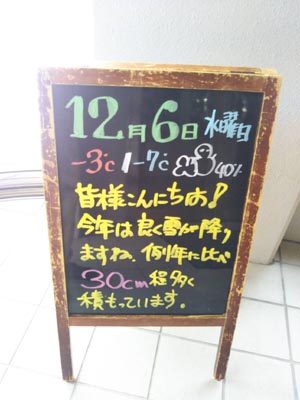 12月6日 水曜日
-3℃/-7℃ 40%
皆様こんにちは!
今年は良く雪が降り
ますね、例年に比べ
30cm程多く
積もっています。